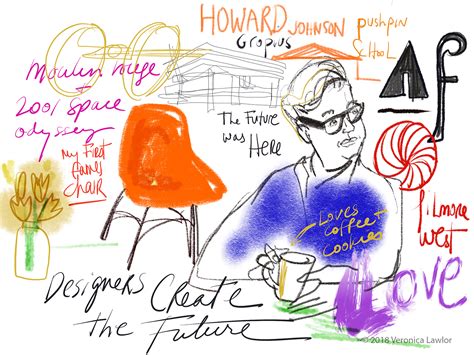 HOWARD JOHNSON
Gropius
pushpin
School
Moulin rouge
+
2001 space
odyssey
my First
Eames
chair
The Future
was
HERE
AF
Loves
coffee+
cookies
Filmore
West
Love
Designers Create
The Future
© 2018 Veronica Lawlor